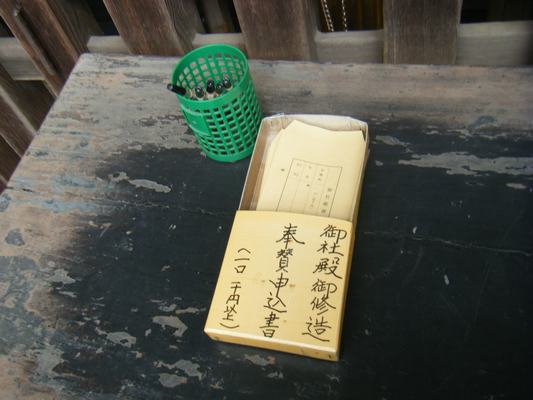 御社殿御修造
奉賛申込書
(一口 千円以上)